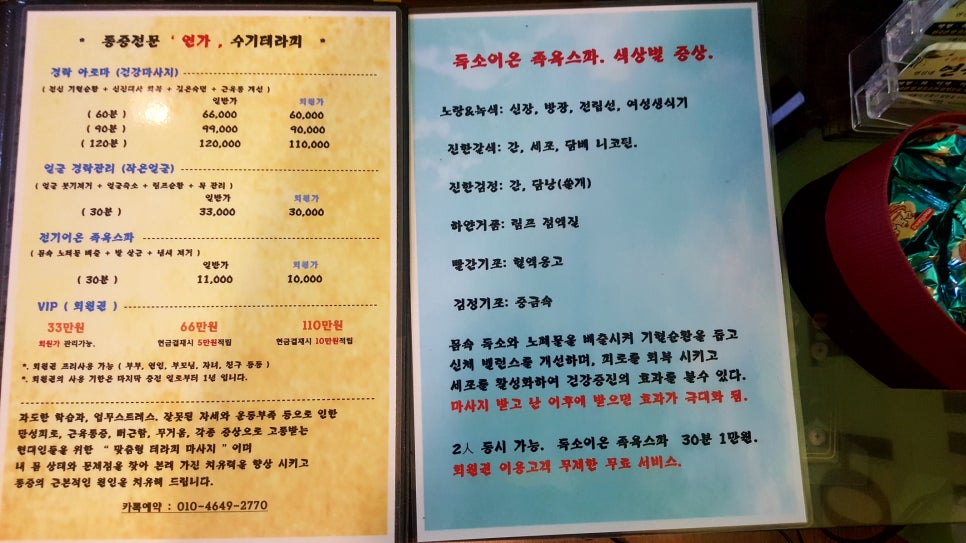 * 통증전문 ' 연가 , 수기테라피 *
경락 아로마 (건강마사지)
( 전신 기혈순환 + 신진대사 회복 + 깊은숙면 + 근육통 개선 )
일반가 회원가
( 60분 ) 66,000 60,000
( 90분 ) 99,000 90,000
( 120분 ) 120,000 110,000
얼굴 경락관리 (작은얼굴)
( 얼굴 붓기제거 + 얼굴축소 + 림프순환 + 목 관리 )
일반가 회원가
( 30분 ) 33,000 30,000
전기이온 족욕스파
( 몸속 노폐물 배출 + 발 살균 + 냄새 제거 )
일반가 회원가
( 30분 ) 11,000 10,000
VIP ( 회원권 )
33만원 66만원 110만원
회원가 관리가능. 현금결재시 5만원적립 현금결재시 10만원적립
*. 회원권 프리사용 가능 ( 부부, 연인, 부모님, 자녀, 친구 등등 )
*. 회원권의 사용 기한은 마지막 충전 일로부터 1년 입니다.
과도한 학습과, 업무스트레스. 잘못된 자세와 운동부족 등으로 인한
만성피로, 근육통증, 뻐근함, 무거움, 각종 증상으로 고통받는
현대인들을 위한 “ 맞춤형 테라피 마사지 ” 이며
내 몸 상태와 문제점을 찾아 본래 가진 치유력을 향상 시키고
통증의 근본적인 원인을 치유해 드립니다.
카톡예약 : 010-4649-2770
독소이온 족욕스파. 색상별 증상.
노랑&녹색: 신장, 방광, 전립선, 여성생식기
진한갈색: 간, 세포, 담배 니코틴.
진한검정: 간, 담낭(쓸개)
하얀거품: 림프 점액질
빨간기포: 혈액응고
검정기포: 중금속
몸속 독소와 노폐물을 배출시켜 기혈순환을 돕고
신체 밸런스를 개선하며, 피로를 회복 시키고
세포를 활성화하여 건강증진의 효과를 볼수 있다.
마사지 받고 난 이후에 받으면 효과가 극대화 됨.
2人 동시 가능. 독소이온 족욕스파 30분 1만원.
회원권 이용고객 무제한 무료 서비스.